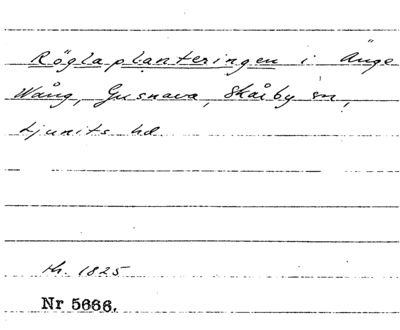 Röglaplanteringen i Änge
Wång, Gusnava, Skårby sn,
Ljunits hd
Nr 5666.